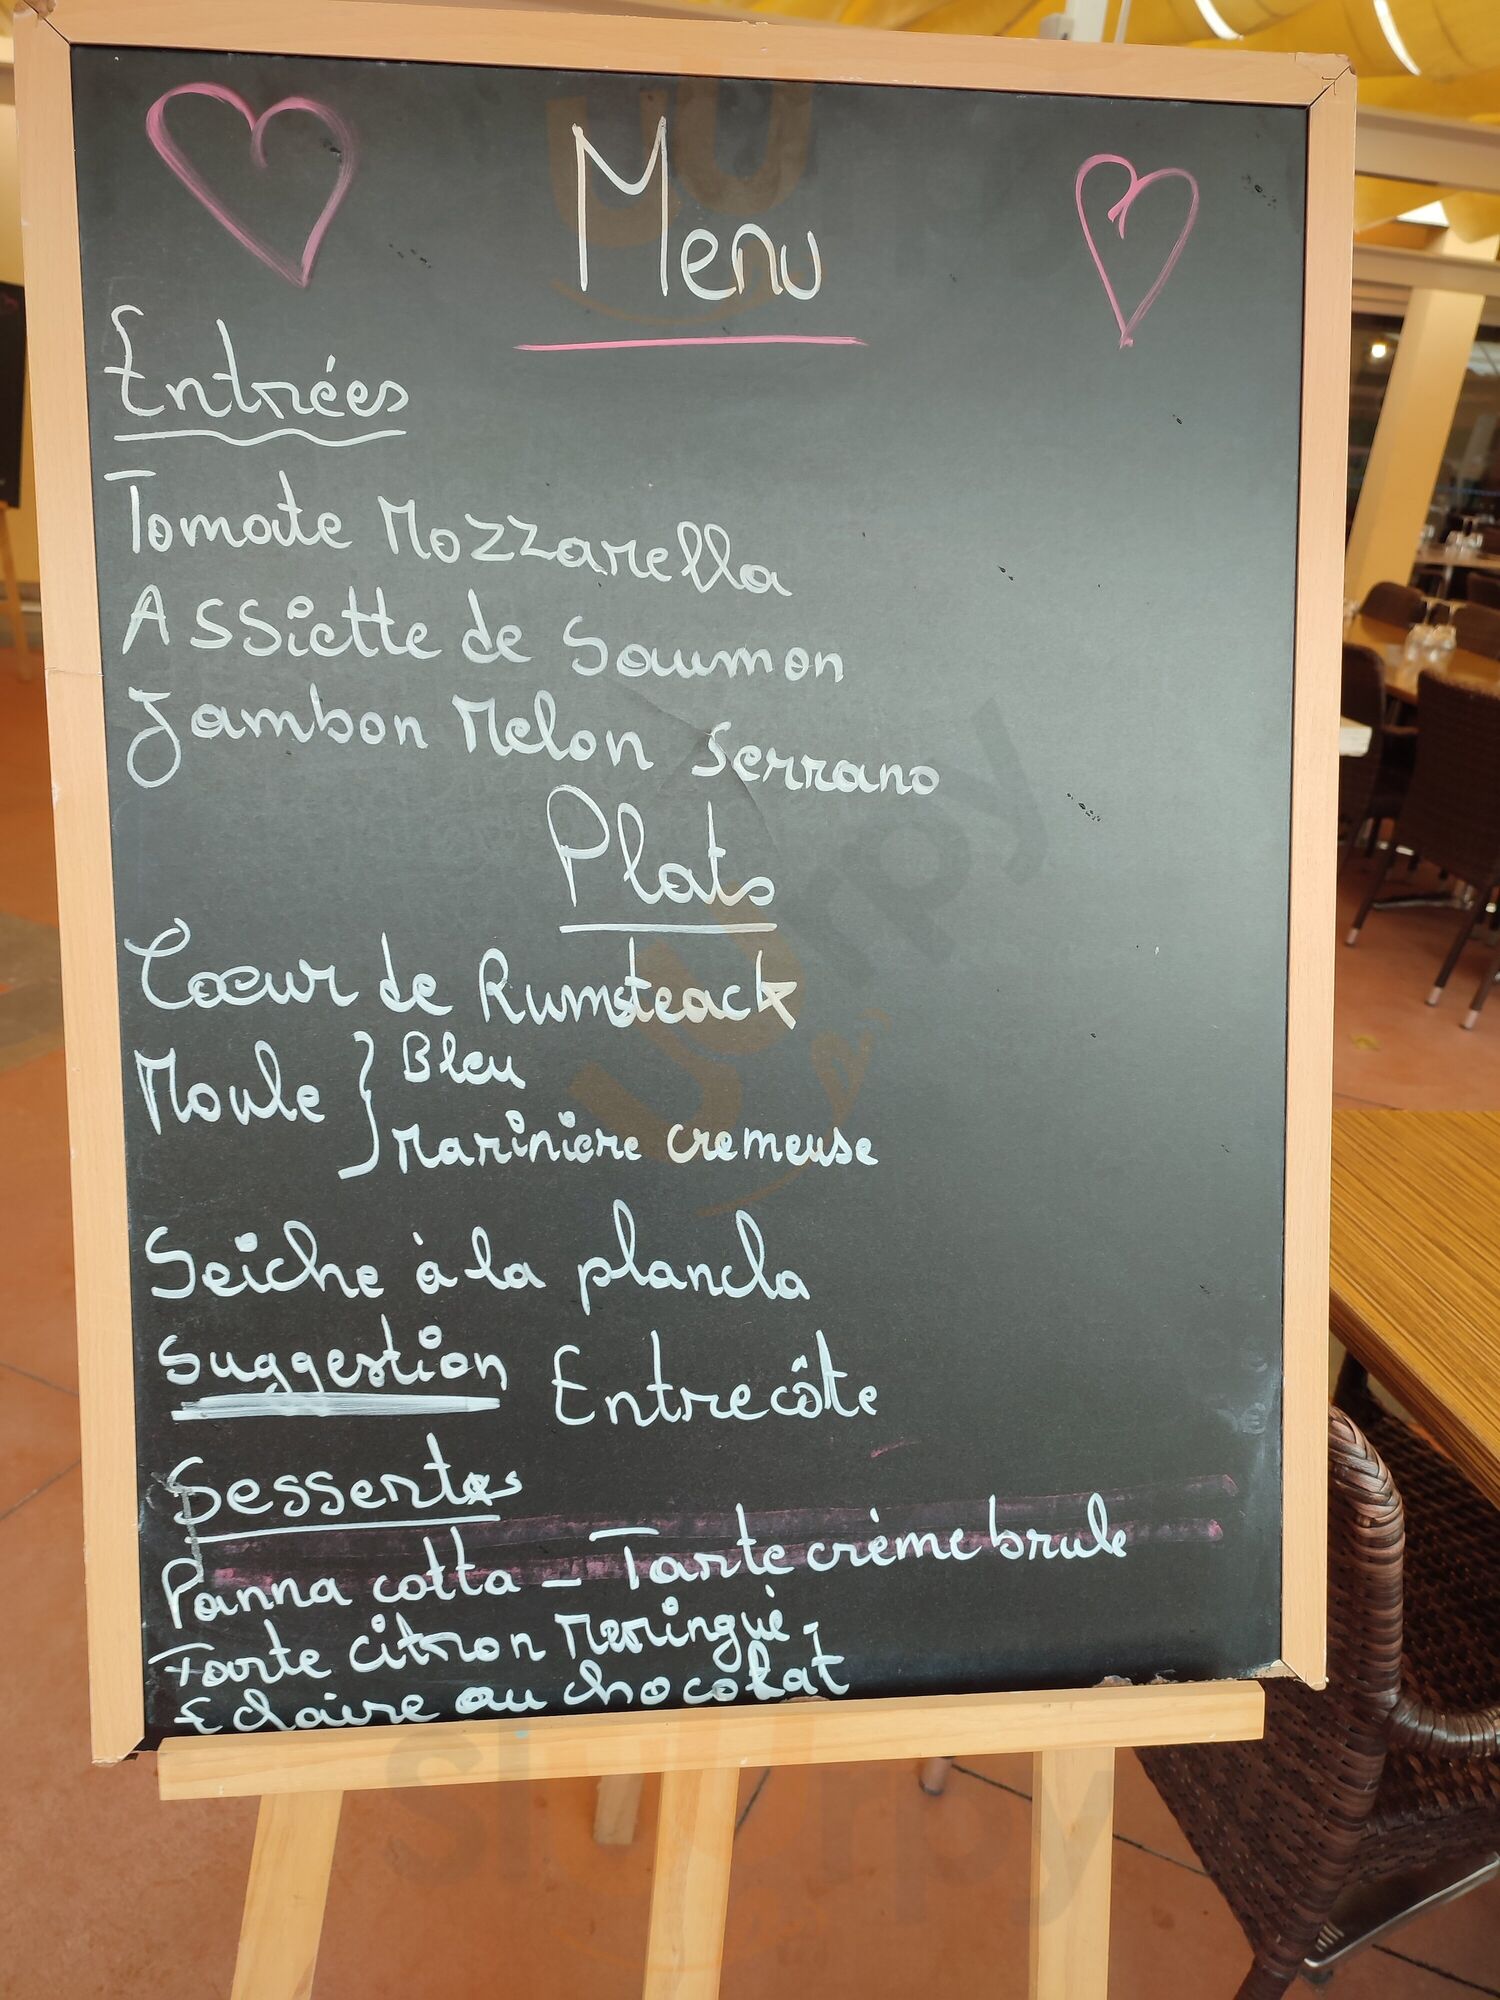 Menu
Entrées
Tomate Mozzarella
Assiette de Saumon
Jambon Melon Serrano
Plats
Coeur de Rumsteack
Moule } Bleu
Mariniere cremeuse
Seiche à la plancha
Suggestion Entrecôte
Dessertes
Panna cotta - Tarte crème brule
Tarte citron Meringué -
Eclaire au chocolat
slurpy
slurpy